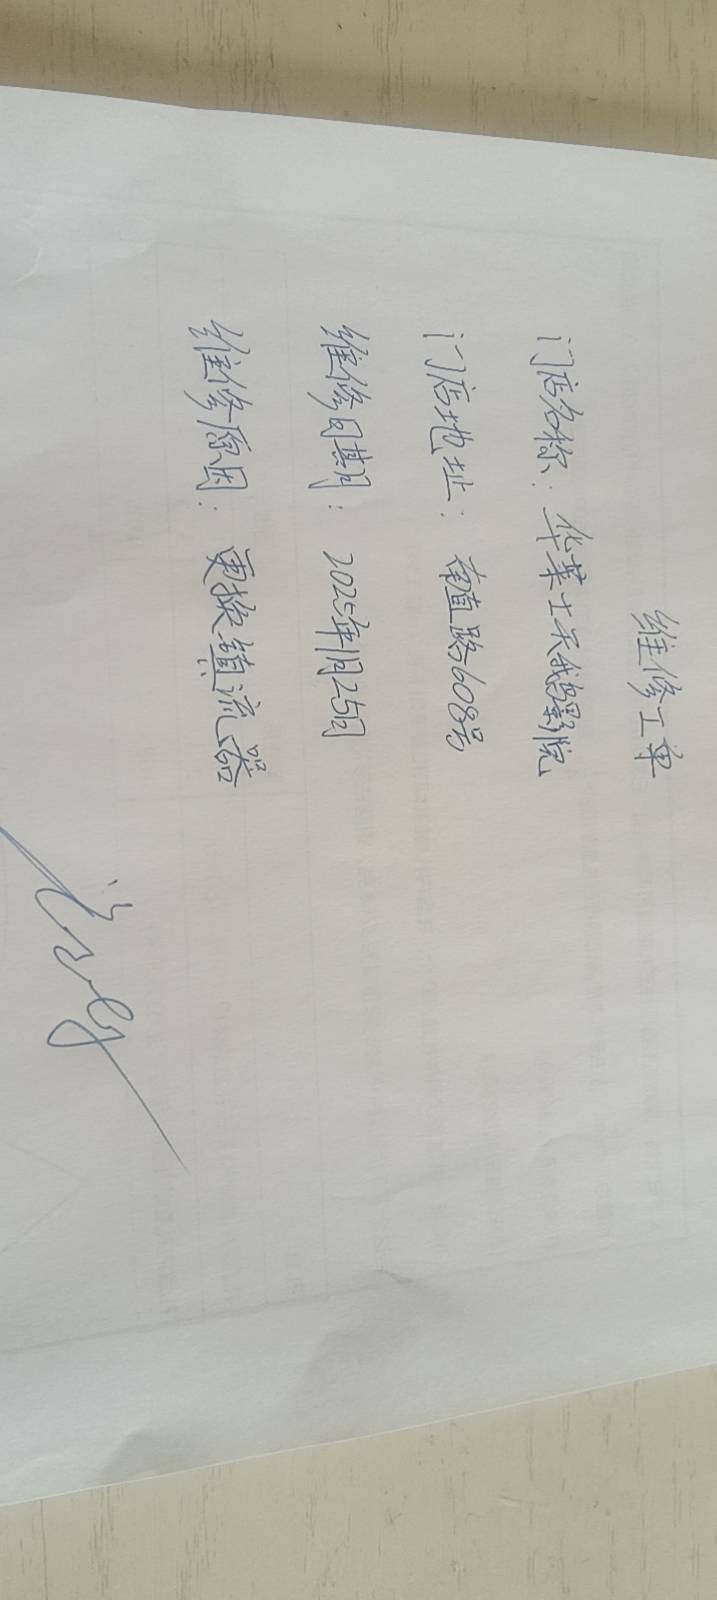 维修工单
门店名称：华莱士天鹅影院
门店地址：南直路608号
维修日期：2025年1月25日
维修原因：更换镇流器